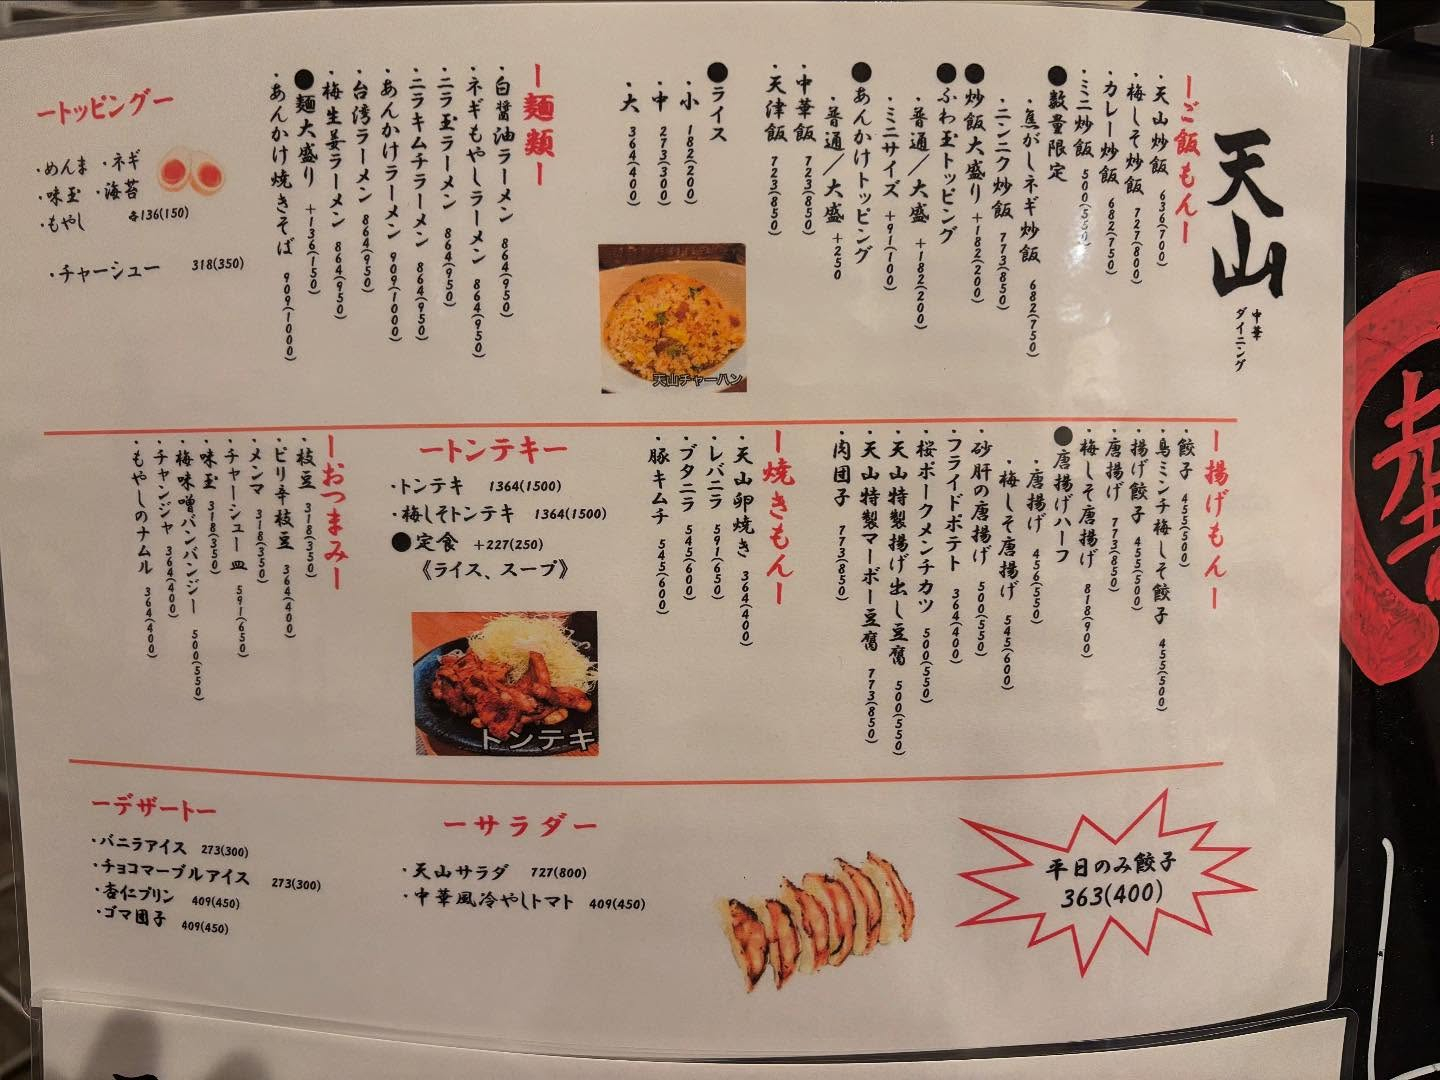 天山
中華
ダイニング
ーご飯もんー
・天山炒飯 636(700)
・梅しそ炒飯 727(800)
・カレー炒飯 682(750)
・ミニ炒飯 500(550)
●数量限定
・焦がしネギ炒飯 682(750)
・ニンニク炒飯 773(850)
●炒飯大盛り +182(200)
●ふわ玉トッピング
・普通/大盛 +182(200)
・ミニサイズ +91(100)
●あんかけトッピング
・普通/大盛 +250
・中華飯 723(850)
・天津飯 723(850)
●ライス
・小 182(200)
・中 273(300)
・大 364(400)
天山チャーハン
ー麺類ー
・白醤油ラーメン 864(950)
・ネギもやしラーメン 864(950)
・ニラ玉ラーメン 864(950)
・ニラキムチラーメン 864(950)
・あんかけラーメン 909(1000)
・台湾ラーメン 864(950)
・梅生姜ラーメン 864(950)
●麺大盛り +136(150)
・あんかけ焼きそば 909(1000)
ートッピングー
・めんま ・ネギ
・味玉 ・海苔
・もやし 各136(150)
・チャーシュー 318(350)
ー揚げもんー
・餃子 455(500)
・鳥ミンチ梅しそ餃子 455(500)
・揚げ餃子 455(500)
・唐揚げ 773(850)
・梅しそ唐揚げ 818(900)
●唐揚げハーフ
・唐揚げ 456(550)
・梅しそ唐揚げ 545(600)
・砂肝の唐揚げ 500(550)
・フライドポテト 364(400)
・桜ポークメンチカツ 500(550)
・天山特製揚げ出し豆腐 500(550)
・天山特製マーボー豆腐 773(850)
・肉団子 773(850)
ー焼きもんー
・天山卵焼き 364(400)
・レバニラ 591(650)
・ブタニラ 545(600)
・豚キムチ 545(600)
ートンテキー
・トンテキ 1364(1500)
・梅しそトンテキ 1364(1500)
●定食 +227(250)
《ライス、スープ》
トンテキ
ーおつまみー
・枝豆 318(350)
・ピリ辛枝豆 364(400)
・メンマ 318(350)
・チャーシュー皿 591(650)
・味玉 318(350)
・梅味噌バンバンジー 500(550)
・チャンジャ 364(400)
・もやしのナムル 364(400)
ーデザートー
・バニラアイス 273(300)
・チョコマーブルアイス 273(300)
・杏仁プリン 409(450)
・ゴマ団子 409(450)
ーサラダー
・天山サラダ 727(800)
・中華風冷やしトマト 409(450)
平日のみ餃子
363(400)